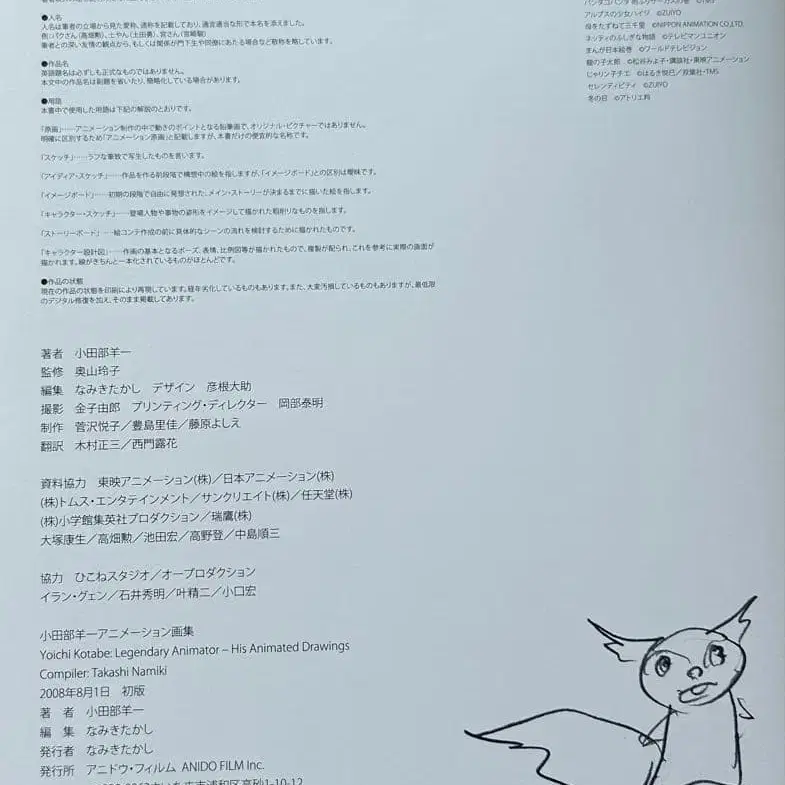 ●人名
人名は筆者の立場から見た愛称、通称を記載しており、適宜適当な形で本名を添えました。
例:パクさん(高畑勲)、土やん(土田勇)、宮さん(宮崎駿)
筆者との深い友情の観点から、もしくは関係が門下生や同僚にあたる場合など敬称を略しています。
●作品名
英語題名は必ずしも正式なものではありません。
本文中の作品名は副題を省いたり、簡略化している場合があります。
●用語
本書中で使用した用語は下記の解説のとおりです。
「原画」……アニメーション制作の中で動きのポイントとなる鉛筆画で、オリジナル・ピクチャーではありません。
明確に区別するため「アニメーション原画」と記載しますが、本書だけの便宜的な名称です。
「スケッチ」……ラフな筆致で写生したものを言います。
「アイディア・スケッチ」……作品を作る前段階で構想中の絵を指しますが、「イメージボード」との区別は曖昧です。
「イメージボード」……初期の段階で自由に発想された、メイン・ストーリーが決まるまでに描いた絵を指します。
「キャラクター・スケッチ」……登場人物や事物の姿形をイメージして描かれた粗削りなものを指します。
「ストーリーボード」……絵コンテ作成の前に具体的なシーンの流れを検討するために描かれたものです。
「キャラクター設計図」……作画の基本となるポーズ、表情、比例図等が描かれたもので、複製が配られ、これを参考に実際の画面が
描かれます。線がきちんと一本化されているものがほとんどです。
●作品の状態
現在の作品の状態を印刷により再現しています。経年劣化しているものもあります。また、大変汚損しているものもありますが、最低限
のデジタル修復を加え、そのまま掲載してあります。
アルプスの少女ハイジ ©ZUIYO
母をたずねて三千里 ©NIPPON ANIMATION CO.,LTD.
ネッティのふしぎな物語 ©テレビマンユニオン
まんが日本絵巻 ©ワールドテレビジョン
龍の子太郎 ©松谷みよ子・講談社・東映アニメーション
じゃりン子チエ ©はるき悦巳/双葉社・TMS
セレンディピティ ©ZUIYO
冬の日 ©アトリエ羚
著者 小田部羊一
監修 奥山玲子
編集 なみきたかし デザイン 彦根大助
撮影 金子由郎 プリンティング・ディレクター 岡部泰明
制作 菅沢悦子/豊島里佳/藤原よしえ
翻訳 木村正三/西門露花
資料協力 東映アニメーション(株)/日本アニメーション(株)
(株)トムス・エンタテインメント/サンクリエイト(株)/任天堂(株)
(株)小学館集英社プロダクション/瑞鷹(株)
大塚康生/高畑勲/池田宏/高野登/中島順三
協力 ひこねスタジオ/オープロダクション
イラン・グェン/石井秀明/叶精二/小口宏
小田部羊一アニメーション画集
Yoichi Kotabe: Legendary Animator – His Animated Drawings
Compiler: Takashi Namiki
2008年8月1日 初版
著 者 小田部羊一
編 集 なみきたかし
発行者 なみきたかし
発行所 アニドウ・フィルム ANIDO FILM Inc.